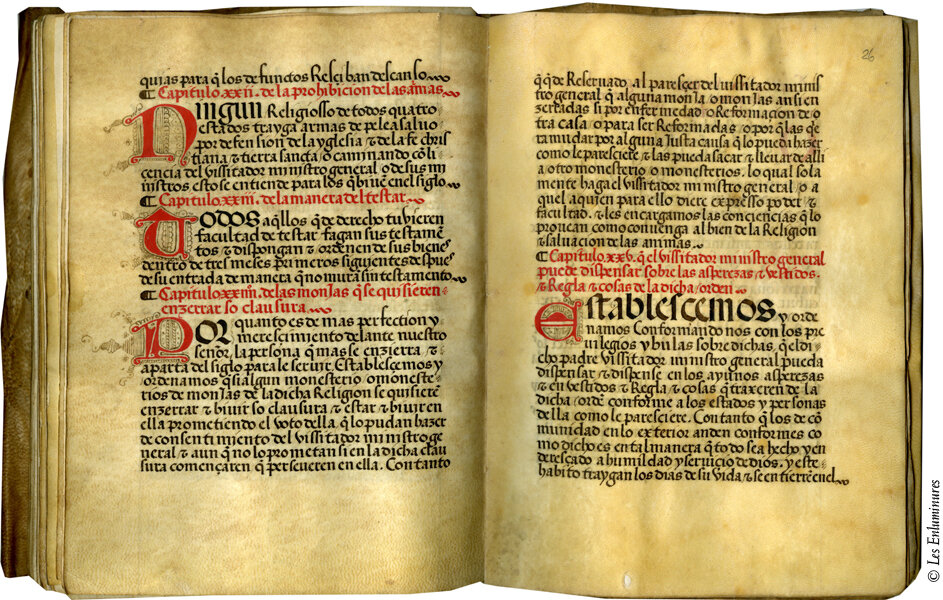 quias para q̃ los defunctos Resçiban descanso.
¶ Capitulo. xxij. de la prohibicion de las armas.
Ningun Religiosso de todos quatro
estados trayga armas de pelea saluo
por defension de la yglesia ⁊ de la fe chris
tiana ⁊ tierra sancta / o caminando cõ li
cencia del vissitador ministro general o de sus mi
nistros esto se entiende para los q̃ biuẽ en el siglo
¶ Capitulo. xxiij. de la manera del testar.
Todos aq̃llos q̃ de derecho tubieren
facultad de testar fagan sus testamẽ
tos ⁊ dispongan ⁊ ordenen de sus bienes
dentro de tres meses primeros siguientes despues
de su entrada de manera q̃ no mura sin testamento
¶ Capitulo. xxiiij. de las monJas q̃ se quisieren
enzerrar so clausura
Por quanto es de mas perfection y
merescimiento delante nuestro
señor, la persona q̃ mas se enzierra ⁊
aparta del siglo para le seruir, Establescemos y
ordenamos q̃ si algun monesterio o moneste
rios de monJas de la dicha Religion se quisierẽ
enzerrar ⁊ biuir so clausura ⁊ estar ⁊ biuir en
ella prometiendo el voto della q̃ lo pudan hazer
de consentimiento del vissitador ministro ge
neral ⁊ aun q̃ no lo prometan si en la dicha clau
sura començaren q̃ perseueren en ella. Con tanto
26
q̃ q̃de Reseruado al paresçer del vissitador minis
tro general q̃ alguna monJa o monJas ansi en
zerradas si por enfermedad o Reformacion de o
tra casa / o para ser Reformadas / o por q̃ las q̃e
ra mudar por alguna Justa causa q̃ lo pueda hazer
como le paresciere ⁊ las pueda sacar ⁊ lleuar de alli
a otro monesterio o monesterios. lo qual sola
mente haga el vissitador ministro general / o a
quel a quien para ello diere expresso poder ⁊
facultad. ⁊ les encargamos las conciencias q̃ lo
prouean como conuenga al bien de la Religion
⁊ saluacion de las animas.
¶ Capitulo. xxv. q̃ el vissitador ministro general
puede dispensar sobre las asperezas ⁊ vestidos.
⁊ Regla ⁊ cosas de la dicha / orden
Establescemos y orde
namos Conformando nos con los pre
uilegios y bulas sobre dichas, q̃ el di
cho padre vissitador ministro general pueda
dispensar ⁊ dispense en los ayunos asperezas
⁊ en vestidos ⁊ Regla ⁊ cosas q̃ traxeren de la
dicha / ordẽ conforme a los estados y personas
della como le paresciere. Con tanto q̃ los de co
munidad en lo exterior anden conformes co
mo dicho es en tal manera q̃ todo sea hecho y en
deresçado a humildad y seruicio de dios. y este
habito traygan los dias de su vida ⁊ se entierrẽ en el
© Les Enluminures